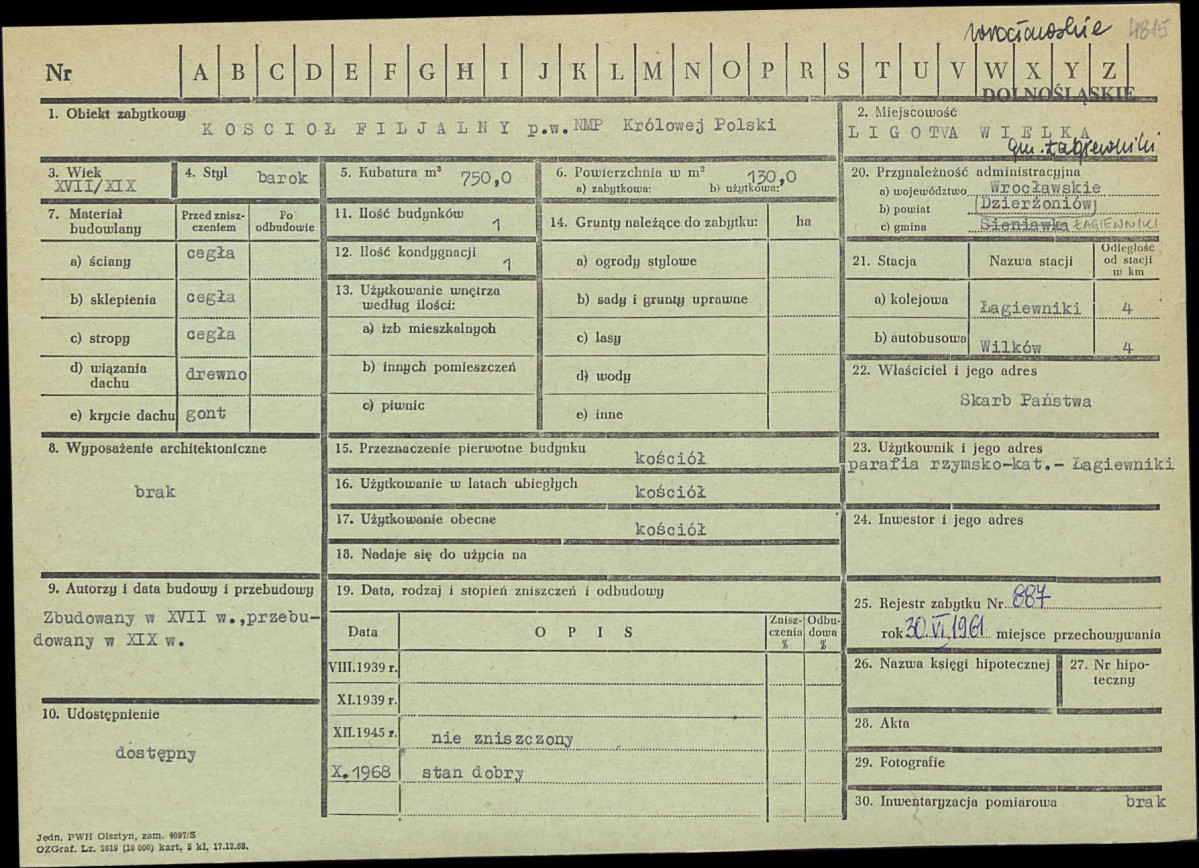 wrocławskie 4815
Nr A B C D E F G H I J K L M N O P R S T U V W X Y Z
DOLNOŚLĄSKIE
1. Obiekt zabytkowy
KOSCIOŁ FILJALNY p.w. NMP Królowej Polski
2. Miejscowość
LIGOTVA WIELKA
gm. Łagiewniki
3. Wiek
XVII/XIX
4. Styl barok
5. Kubatura m³ 750,0
6. Powierzchnia w m² 130,0
a) zabytkowa: b) użytkowa:
20. Przynależność administracyjna
a) województwo Wrocławskie
b) powiat (Dzierżoniów)
c) gmina Sieniawka ŁAGIEWNIKI
7. Materiał budowlany
Przed zniszczeniem
Po odbudowie
a) ściany cegła
b) sklepienia cegła
c) stropy cegła
d) wiązania dachu drewno
e) krycie dachu gont
11. Ilość budynków 1
12. Ilość kondygnacji 1
13. Użytkowanie wnętrza
według ilości:
a) izb mieszkalnych
b) innych pomieszczeń
c) piwnic
14. Grunty należące do zabytku: ha
a) ogrody stylowe
b) sady i grunty uprawne
c) lasy
d) wody
e) inne
21. Stacja Nazwa stacji Odległość od stacji w km
a) kolejowa Łagiewniki 4
b) autobusowa Wilków 4
22. Właściciel i jego adres
Skarb Państwa
8. Wyposażenie architektoniczne
brak
15. Przeznaczenie pierwotne budynku kościół
16. Użytkowanie w latach ubiegłych kościół
17. Użytkowanie obecne kościół
18. Nadaje się do użycia na
23. Użytkownik i jego adres
parafia rzymsko-kat.- Łagiewniki
24. Inwestor i jego adres
9. Autorzy i data budowy i przebudowy
Zbudowany w XVII w.,przebu-
dowany w XIX w.
10. Udostępnienie
dostępny
19. Data, rodzaj i stopień zniszczeń i odbudowy
Data O P I S Znisz-czenia % Odbu-dowa %
VIII.1939 r.
XI.1939 r.
XII.1945 r. nie zniszczony
X.1968 stan dobry
25. Rejestr zabytku Nr 887
rok 30.VI.1961 miejsce przechowywania
26. Nazwa księgi hipotecznej
27. Nr hipo-
teczny
28. Akta
29. Fotografie
30. Inwentaryzacja pomiarowa brak
Jedn. PWH Olsztyn, zam. 4097/S
OZGraf. Lz. 2619 (10 000) kart. 5 kl. 17.12.68.